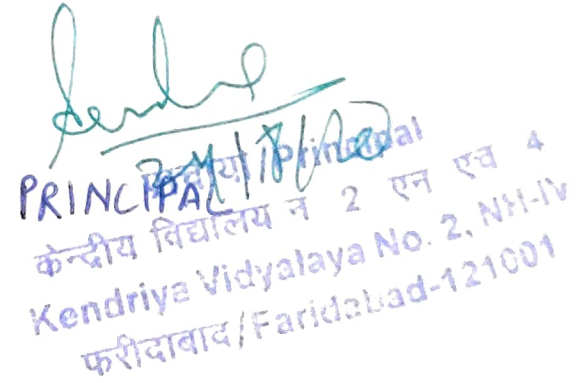 प्राचार्य/Principal
PRINCIPAL
केन्द्रीय विद्यालय न 2 एन एच 4
Kendriya Vidyalaya No. 2, NH-IV
फरीदाबाद/Faridabad-121001